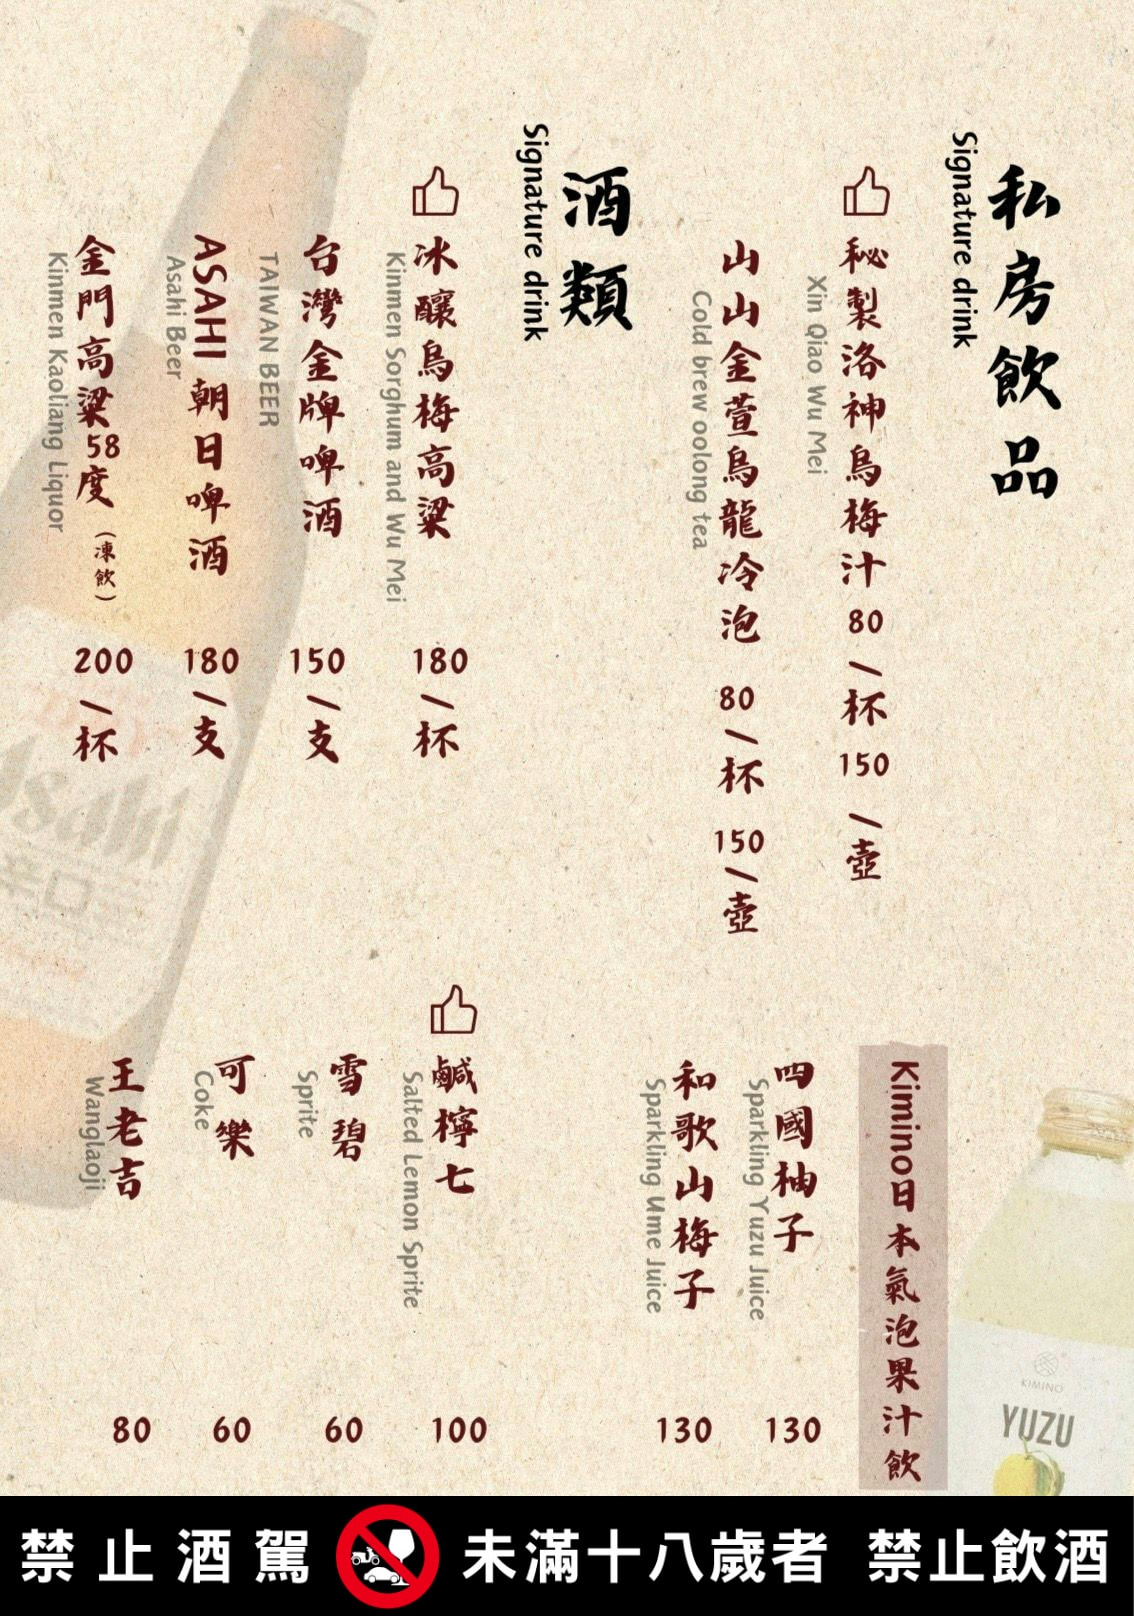 私房飲品
Signature drink
秘製洛神烏梅汁 80/杯 150/壺
Xin Qiao Wu Mei
山山金萱烏龍冷泡 80/杯 150/壺
Cold brew oolong tea
酒類
Signature drink
冰釀烏梅高粱 180/杯
Kinmen Sorghum and Wu Mei
台灣金牌啤酒 150/支
TAIWAN BEER
ASAHI 朝日啤酒 180/支
Asahi Beer
金門高粱58度(凍飲) 200/杯
Kinmen Kaoliang Liquor
Kimino日本氣泡果汁飲
四國柚子 130
Sparkling Yuzu Juice
和歌山梅子 130
Sparkling Ume Juice
鹹檸七 100
Salted Lemon Sprite
雪碧 60
Sprite
可樂 60
Coke
王老吉 80
Wanglaoji
KIMINO
YUZU
Asahi
辛口
禁止酒駕 未滿十八歲者 禁止飲酒